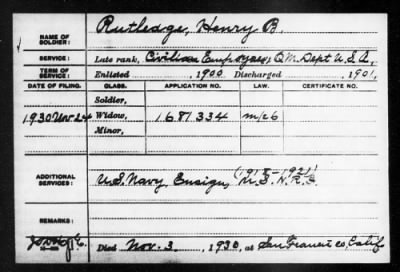 NAME OF SOLDIER: Rutledge, Henry B.
SERVICE: Late rank, Civilian Employee, Q.M. Dept U.S.A.,
TERM OF SERVICE: Enlisted , 1900 Discharged , 1901,
DATE OF FILING. CLASS. APPLICATION NO. LAW. CERTIFICATE NO.
Soldier,
1930 Nov-24 Widow, 1681334 m/c6
Minor,
ADDITIONAL SERVICES: U.S. Navy Ensign, U.S.N.R.F.
REMARKS:
Died Nov. 3 , 1930, at San Francisco, Calif